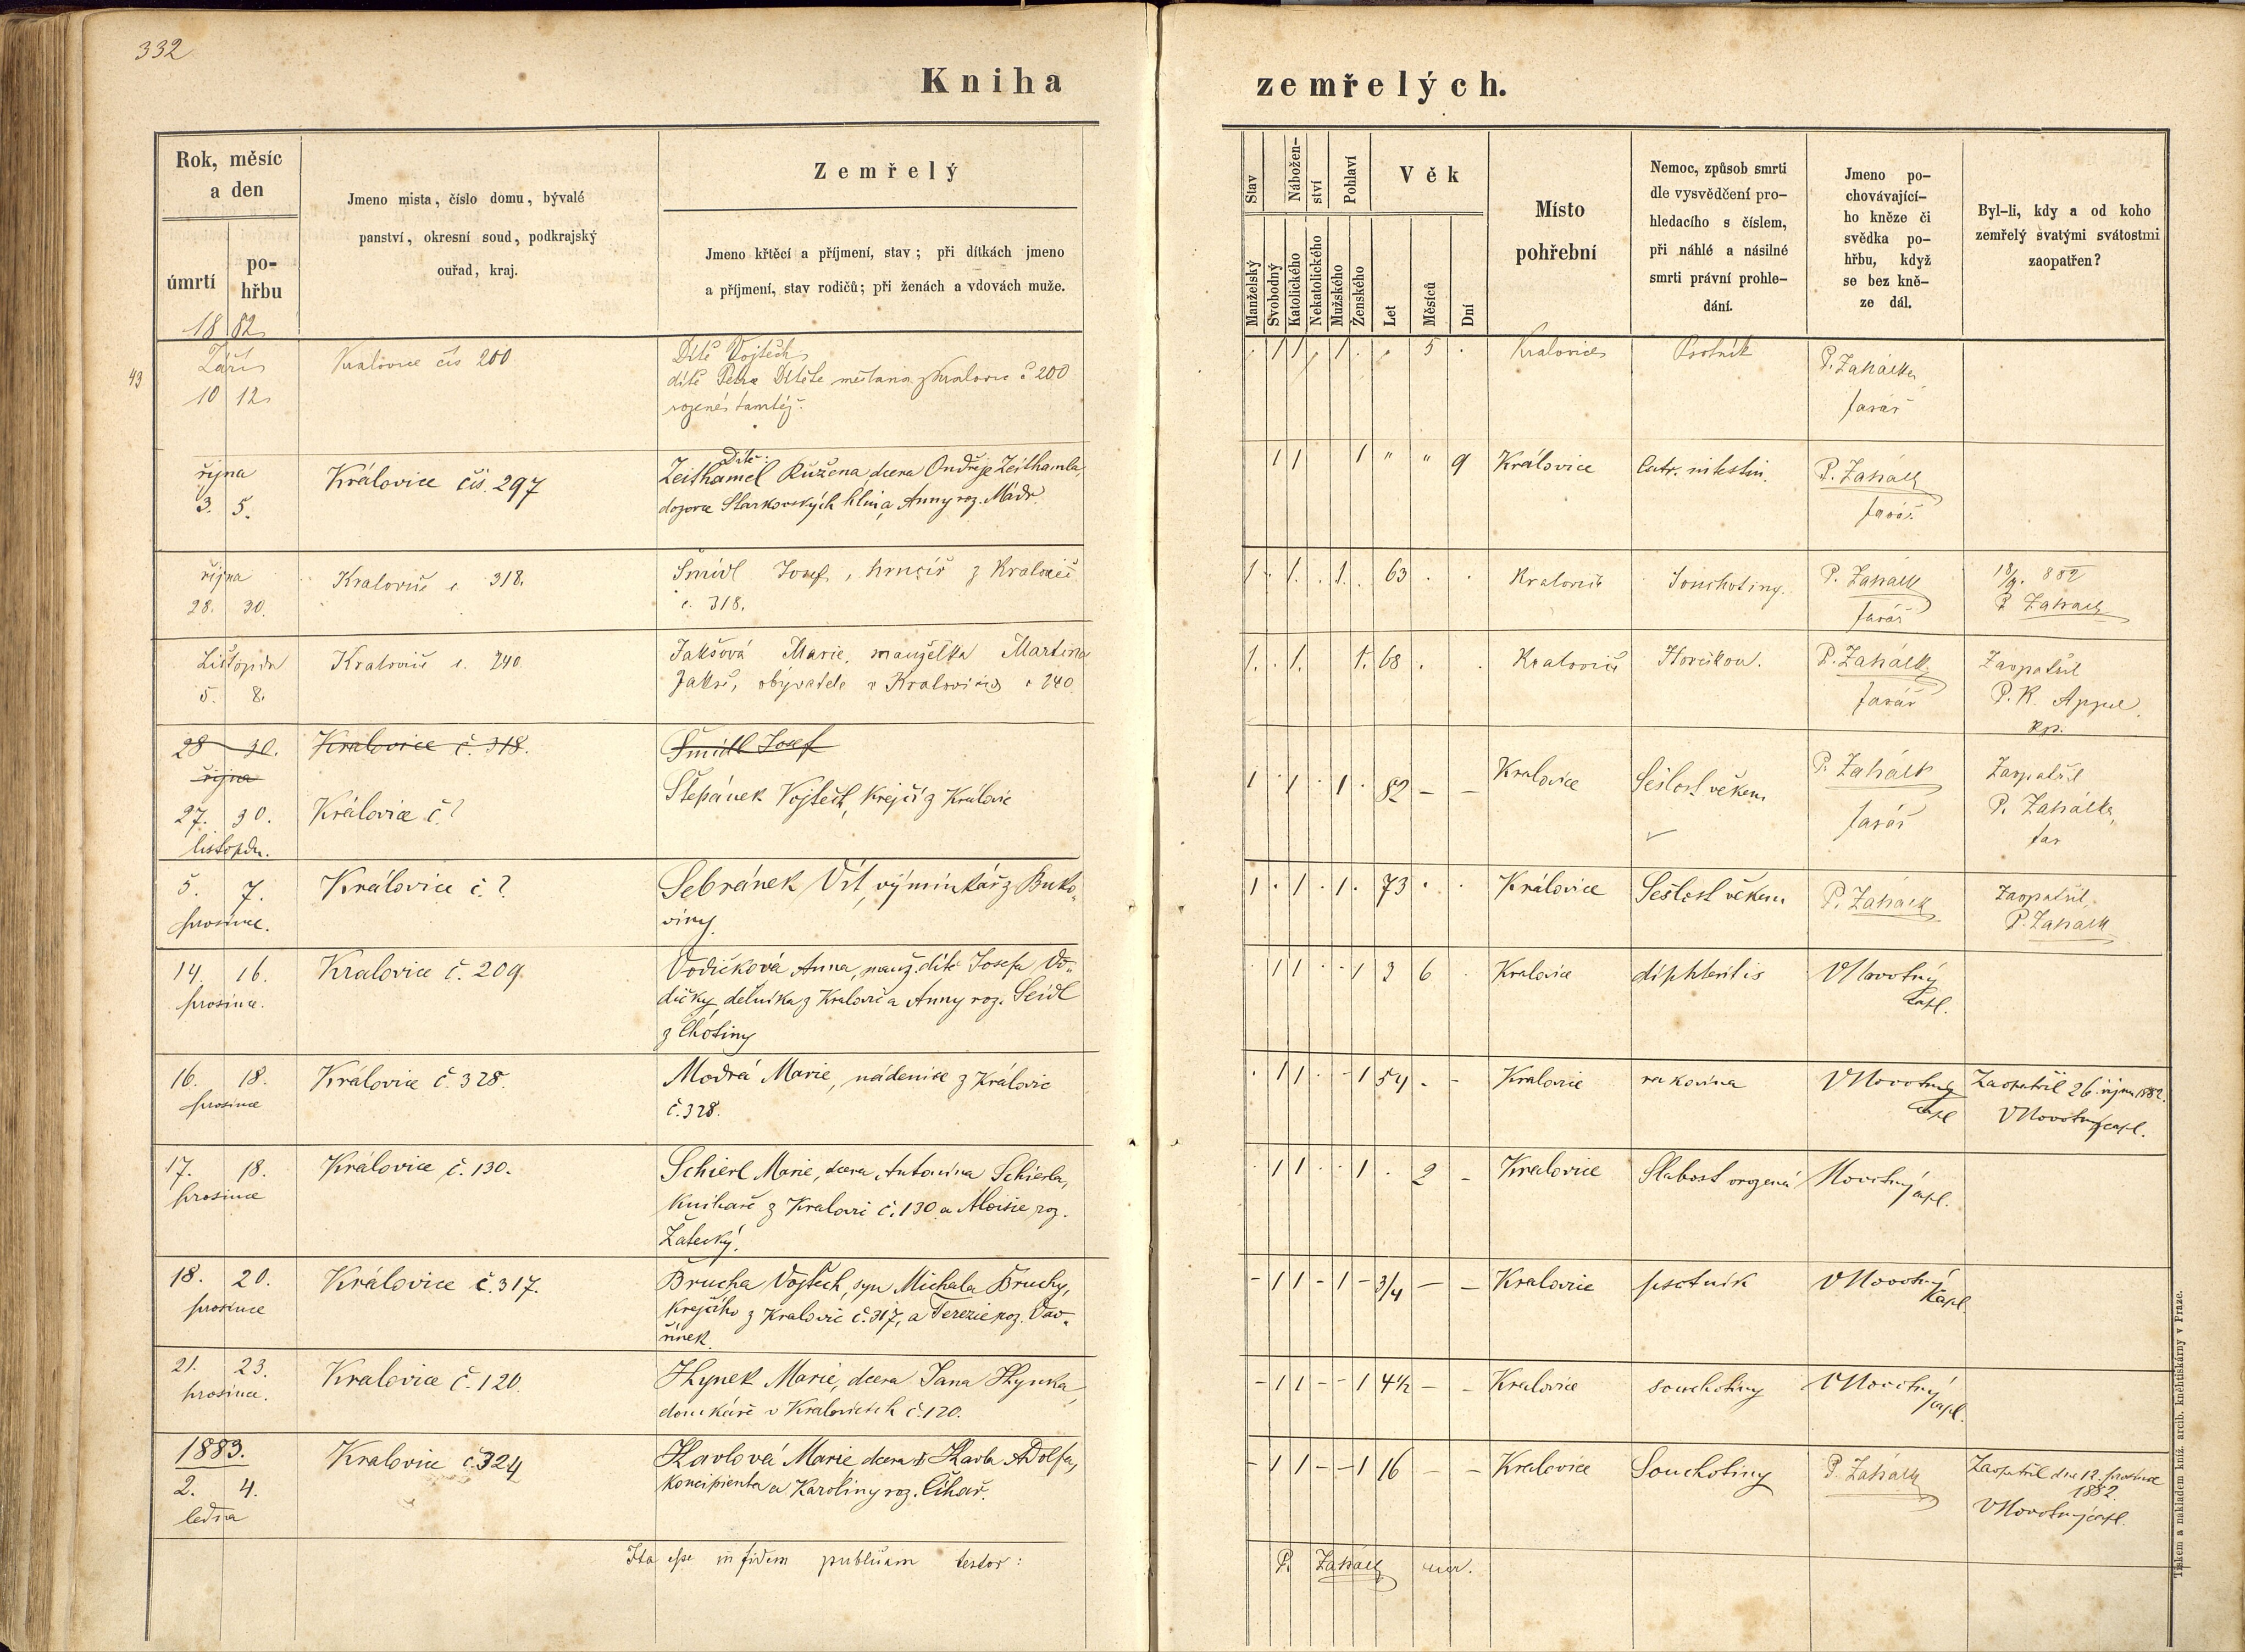 332
Kniha zemřelých.
Rok, měsíc
a den
úmrtí
po-
hřbu
Jmeno mista, číslo domu, bývalé
panství, okresní soud, podkrajský
ouřad, kraj.
Zemřelý
Jmeno křtěcí a příjmení, stav; při dítkách jmeno
a příjmení, stav rodičů; při ženách a vdovách muže.
Stav
Nábožen-
ství
Pohlaví
Věk
Manželský
Svobodný
Katolického
Nekatolického
Mužského
Ženského
Let
Měsíců
Dní
Místo
pohřební
Nemoc, způsob smrti
dle vysvědčení pro-
hledacího s číslem,
při náhlé a násilné
smrti právní prohle-
dání.
Jmeno po-
chovávající-
ho kněze či
svědka po-
hřbu, když
se bez kně-
ze dál.
Byl-li, kdy a od koho
zemřelý svatými svátostmi
zaopatřen?
1882
43
Září
10 12
Kralovice čís 200
Dítě Vojtěch
dítě Petra Dítěte měšťana z Kralovic č 200
rozené tamtéž.
1 1 1 5
Kralovice
Psotník
P. Zahálka
farář
října
3. 5.
Královice čís. 297
Dítě:
Zeithamel Růžena dcera Ondřeje Zeithamla,
dozorce Starkovských hlin a Anny roz. Mádr.
1 1 1 " " 9
Královice
Catr. intestin.
P. Zahálk
farář.
října
28. 30.
Kralovic č. 318.
Šmídl Josef, hrnčíř z Kralovic
č. 318.
1. 1. 1. 63 . .
Kralovic
Souchotiny.
P. Zahálk
farář
18/9. 882
P. Zahálk
Listopadu
5. 8.
Kralovic č. 240.
Jakšová Marie, manželka Martina
Jakše, obyvatele v Kralovicích č 240
1. 1. 1. 68 . .
Kralovic
Horečkou.
P. Zahálk
farář
Zaopatřil
P. R. Appel
kp.
28 30.
října
Kralovice č. 318.
Šmídl Josef
27. 30.
listopdu.
Královice č?
Štěpánek Vojtěch, krejčí z Královic
1 1 1 82 – –
Kralovice
Sešlost věkem
P. Zahálk
farář
Zaopatřil
P. Zahálka,
far
5. 7.
prosince.
Královice č.?
Sebránek Vít, výminkář z Buko-
viny.
1 1 1. 73 . .
Královice
Sešlost věkem
P. Zahálk
Zaopatřil
P. Zahálk
14. 16.
prosince.
Kralovice č. 209.
Vodičková Anna, manž. dítě Josefa Vo-
dičky, dělníka z Kralovic a Anny roz. Seidl
z Chotiny
1 1 1 3 6
Kralovice
diphteritis
VNovotný
capl.
16. 18.
prosince
Královice č. 328.
Modrá Marie, nádenice z Královic
č. 328.
1 1 1 54 - -
Kralovice
rakovina
VNovotný
capl
Zaopatřil 26. října 1882.
VNovotný capl.
17. 18.
prosince
Královice č. 130.
Schierl Marie, dcera Antonína Schierla,
knihaře z Kralovic č. 130 a Aloisie roz.
Žatecký.
1 1 1 . 2 -
Kralovice
Slabost vrozená
Novotný capl.
18. 20.
prosince
Královice č. 317.
Brucha Vojtěch, syn Michala Bruchy,
krejčího z Kralovic č. 317, a Terezie roz. Vav-
řínek.
- 1 1 - 1 - 3/4 — —
Kralovice
psotník
VNovotný
kapl.
21. 23.
prosince.
Kralovice č. 120.
Hynek Marie, dcera Jana Hynka,
domkáře v Kralovicích č. 120.
- 1 1 - - 1 4½ — -
Kralovice
souchotiny
VNovotný
capl.
1883.
2. 4.
ledna
Kralovice č. 324
Havlová Marie dcera Havla Adolfa,
koncipienta a Karoliny roz. Čihař.
- 1 1 - - 1 16 — -
Kralovice
Souchotiny
P. Zahálk
Zaopatřil dne 12. prosince
1882
VNovotný capl.
Ita esse in fidem publicam testor:
P. Zahálk
Tiskem a nákladem kniž. arcib. knihtiskárny v Praze.